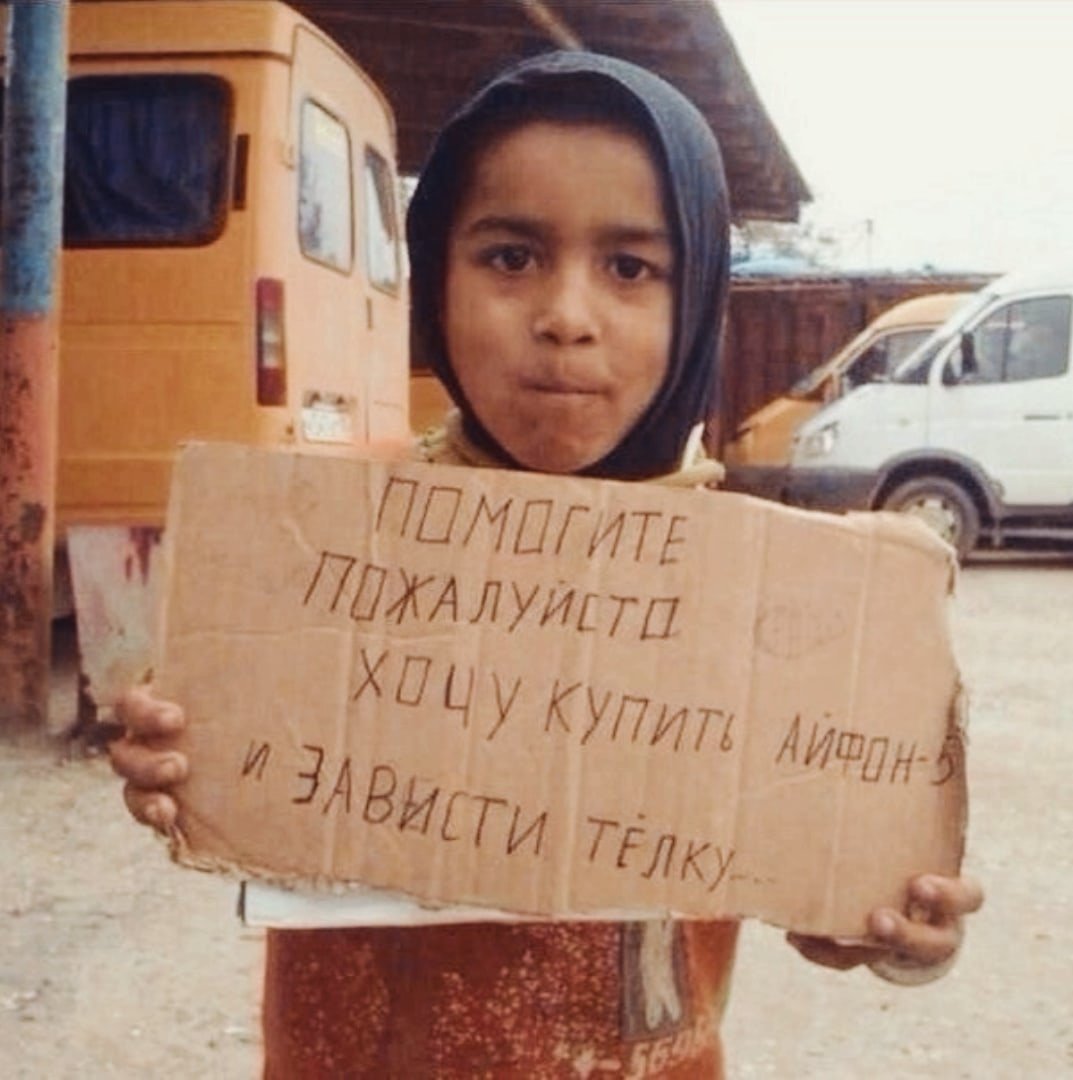 ПОМОГИТЕ
ПОЖАЛУЙСТА
ХОЧУ КУПИТЬ АЙФОН-5
И ЗАВИСТИ ТЁЛКУ...